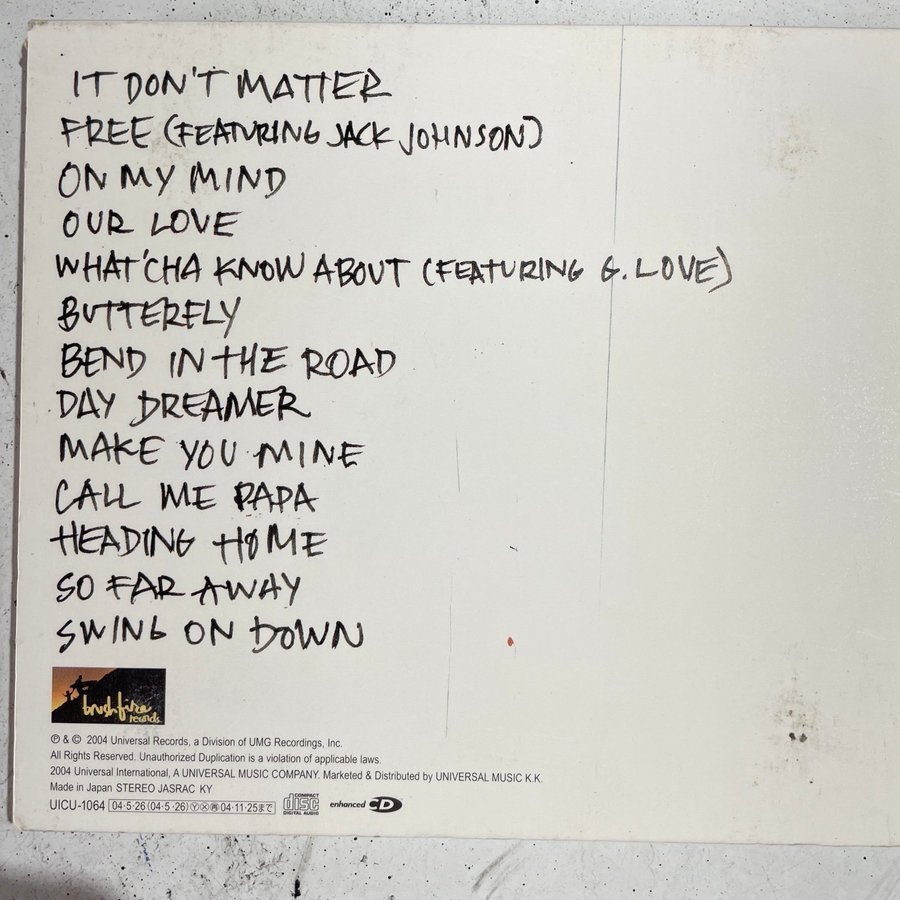 IT DON'T MATTER
FREE (FEATURING JACK JOHNSON)
ON MY MIND
OUR LOVE
WHAT'CHA KNOW ABOUT (FEATURING G. LOVE)
BUTTERFLY
BEND IN THE ROAD
DAY DREAMER
MAKE YOU MINE
CALL ME PAPA
HEADING HOME
SO FAR AWAY
SWING ON DOWN
brushfire
records
℗ & © 2004 Universal Records, a Division of UMG Recordings, Inc.
All Rights Reserved. Unauthorized Duplication is a violation of applicable laws.
2004 Universal International, A UNIVERSAL MUSIC COMPANY. Marketed & Distributed by UNIVERSAL MUSIC K.K.
Made in Japan STEREO JASRAC KY
UICU-1064 04·5·26 (04·5·26) Ⓨ Ⓧ ㊞ 04·11·25まで COMPACT disc DIGITAL AUDIO enhanced CD